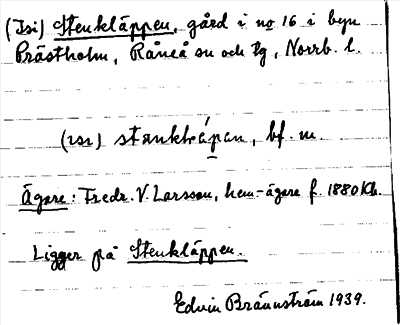 (Isi) Stenkläppen, gård i no 16 i byn
Prästholm, Råneå sn och tg, Norrb. l.
bf. m.
Ägare: Fredr. V. Larsson, hem-ägare f. 1880 Kb.
Ligger på Stenkläppen.
Edvin Brännström 1939.